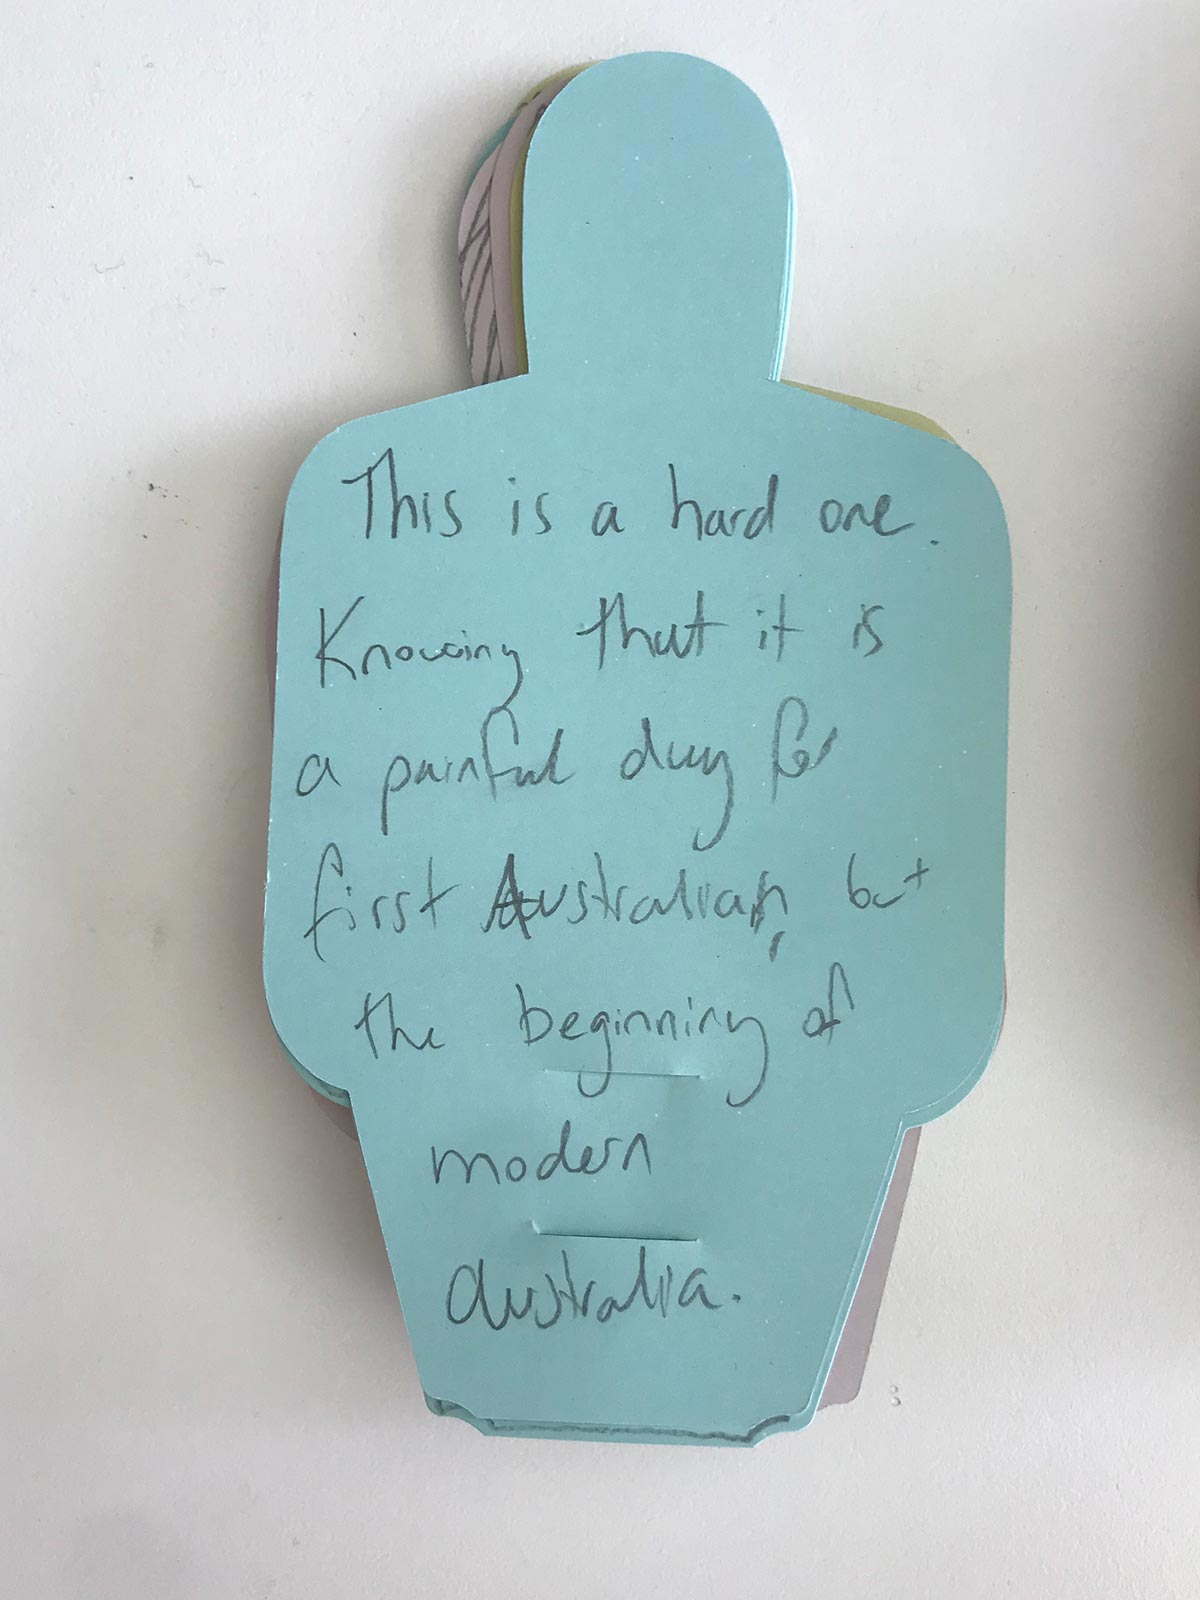 This is a hard one.
Knowing that it is
a painful day for
first Australian, but
the beginning of
modern
Australia.